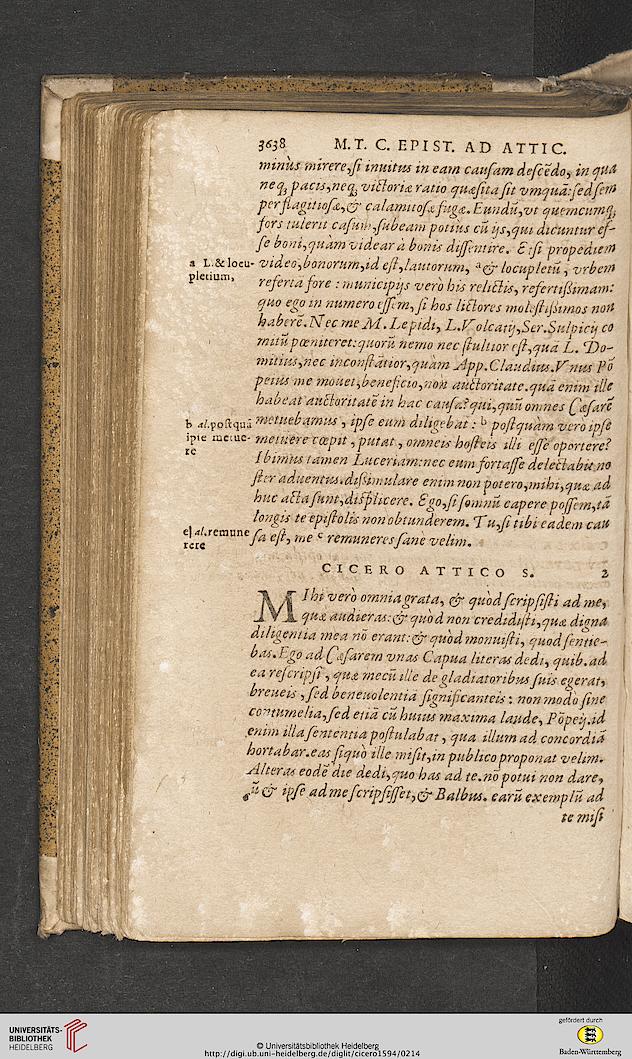 3638 M. T. C. EPIST. AD ATTIC.
minùs mirere, si inuitus in eam causam descẽdo, in qua
neq; pacis, neq; victoriæ ratio quæsita sit vmquã: sed sem
per flagitiosæ, & calamitosæ fugæ. Eundũ, vt quemcumq;
fors tulerit casum, subeam potiùs cũ ijs, qui dicuntur es-
se boni, quàm videar à bonis dissentire. Etsi propediem
a L. & locu- video, bonorum, id est, lautorum, ᵃ & locupletũ, vrbem
pletium, refertã fore: municipijs verò his relictis, refertißimam:
quo ego in numero essem, si hos lictores molestißimos non
haberẽ. Nec me M. Lepidi, L. Volcatij, Ser. Sulpicij co
mitũ pœniteret: quorũ nemo nec stultior est, quã L. Do-
mitius, nec incõstãtior, quàm App. Claudius. Vnus Põ
peius me mouet, beneficio, non auctoritate. quã enim ille
habeat auctoritatẽ in hac causa? qui, quũ omnes Cæsarẽ
b al. postquã metuebamus, ipse eum diligebat: ᵇ postquam verò ipse
ipse metue- metuere cœpit, putat, omneis hosteis illi esse oportere?
re Ibimus tamen Luceriam: nec eum fortasse delectabit no
ster aduentus. dißimulare enim non potero, mihi, quæ ad
huc acta sunt, displicere. Ego, si somnũ capere possem, tã
longis te epistolis non obtunderem. Tu, si tibi eadem cau
c al. remune sa est, me ᶜ remuneres sanè velim.
rere
CICERO ATTICO S. 2
MIhi verò omnia grata, & quòd scripsisti ad me,
quæ audieras: & quòd non credidisti, quæ digna
diligentia mea nõ erant: & quòd monuisti, quod sentie-
bas. Ego ad Cæsarem vnas Capua literas dedi, quib. ad
ea rescripsi, quæ mecũ ille de gladiatoribus suis egerat,
breueis, sed beneuolentiã significanteis: non modò sine
contumelia, sed etiã cũ huius maxima laude, Põpeij. id
enim illa sententia postulabat, qua illum ad concordiã
hortabar. eas siquò ille misit, in publico proponat velim.
Alteras eodẽ die dedi, quo has ad te. nõ potui non dare,
ũ & ipse ad me scripsisset, & Balbus. earũ exemplũ ad
te misi
UNIVERSITÄTS-
BIBLIOTHEK
HEIDELBERG
© Universitätsbibliothek Heidelberg
http://digi.ub.uni-heidelberg.de/diglit/cicero1594/0214
gefördert durch
Baden-Württemberg